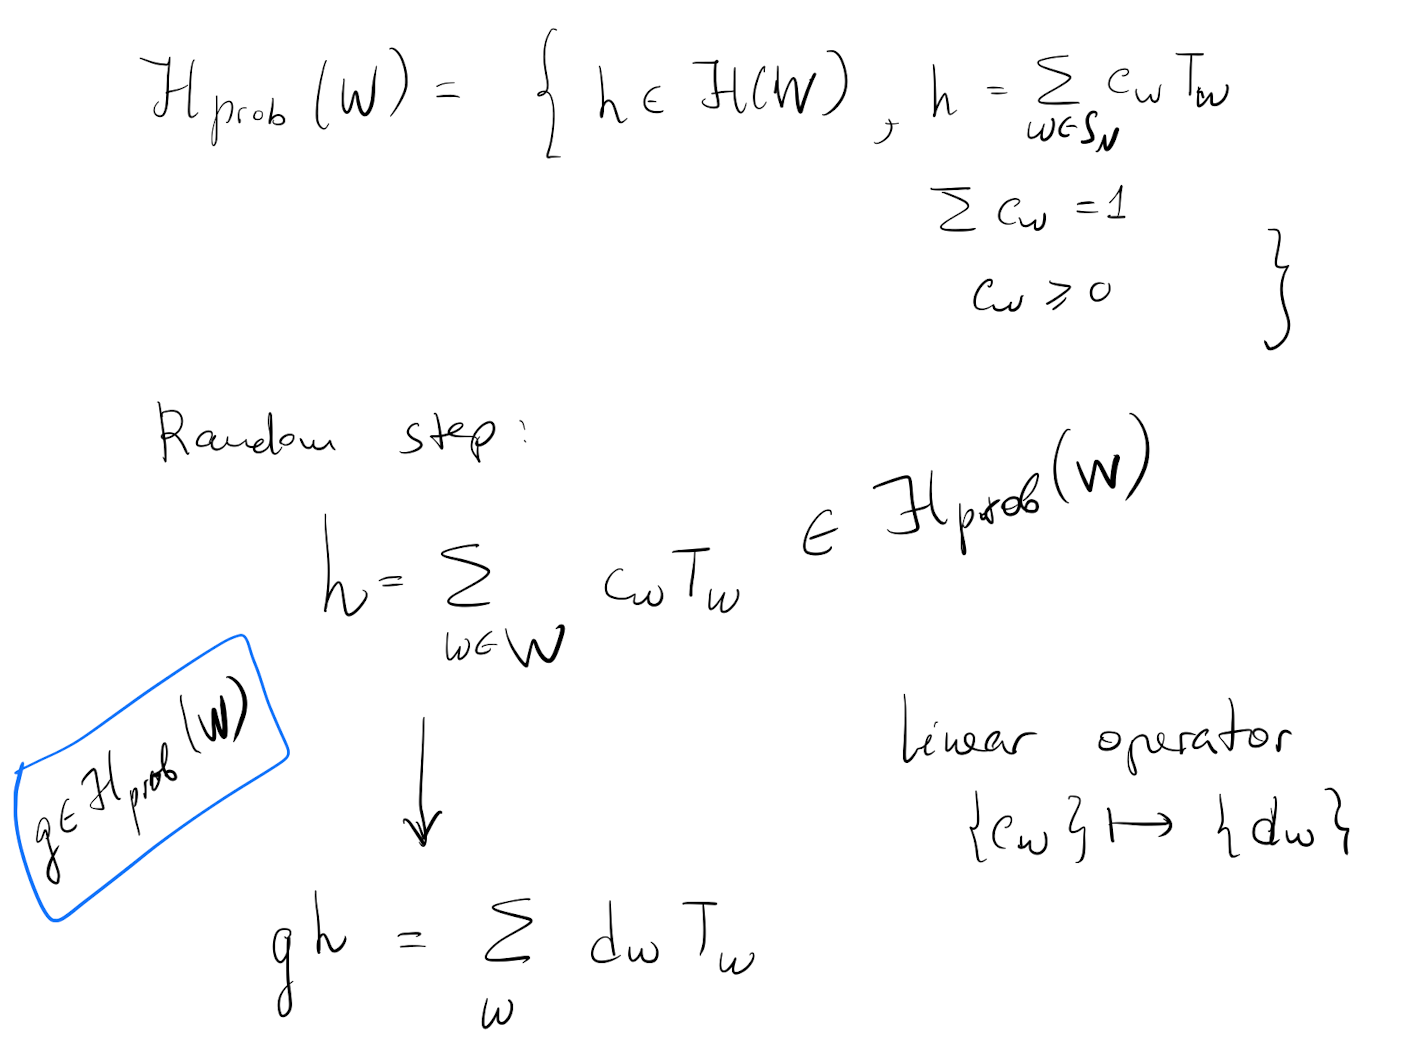 ℋ_prob (W) = { h ∈ ℋ(W), h = ∑_{w∈S_N} c_w T_w
∑ c_w = 1
c_w ⩾ 0 }
Random step:
h = ∑_{w∈W} c_w T_w ∈ ℋ_prob (W)
g ∈ ℋ_prob (W)
Linear operator
{c_w} ↦ {d_w}
g h = ∑_w d_w T_w